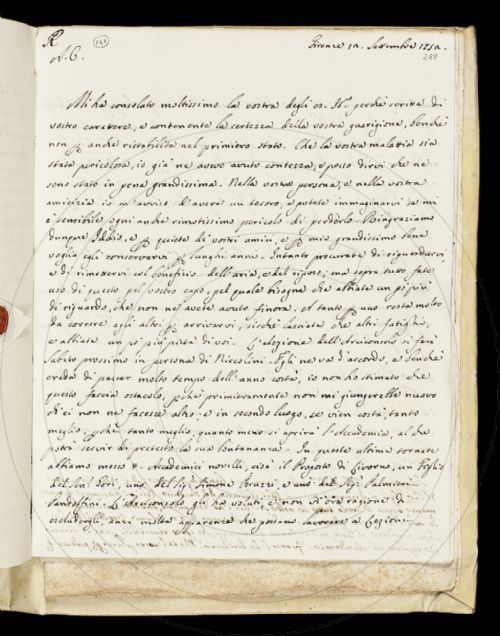 R
141
Firenze 12. Settembre 1752.
A. C.
288
Mi ha consolato moltissimo la vostra degli 11. perché scritta di
vostro carattere, e contenente la certezza della vostra guarigione, benché
non anche ristabilita nel primiero stato. Che la vostra malattia sia
stata pericolosa, io già ne avevo avuto contezza, e posso dirvi che ne
sono stato in pena grandissima. Nella vostra persona, e nella vostra
amicizia io m'avviso d'avere un tesoro, e potete immaginarvi se mi
è sensibile ogni anche rimotissimo pericolo di perderlo. Ringraziamo
dunque Iddio, e quiete de' vostri amici, e mio grandissimo bene
voglia egli conservarvi lunghi anni. Intanto procurate di riguardarvi
e di rimettervi col beneficio dell'aria, e del riposo; ma sopra tutto fate
uso di questo pel vostro capo, pel quale bisogna che abbiate un po' più
di riguardo, che non ne avete avuto finora. A tanto uno resta molto
da correre agli altri arrivarvi, sicché lasciate che altri fatighi,
e abbiate un po' più pietà di voi. L'elezione dell'Arciconsolo si farà
Sabato prossimo in persona di Niccolini. Egli ne va d'accordo, e benché
creda di passar molto tempo dell'anno costà, io non ho stimato che
questo faccia ostacolo, perché primieramente non mi giungerebbe nuovo
di ei non ne facesse altro: e in secondo luogo, se vien costà, tanto
meglio, perché tanto meglio, quanto meno si aprirà l'Accademia, al che
potrà servir di pretesto la sua lontananza. In queste ultime tornate
abbiamo messo 4. Accademici novelli, cioè il Proposto di Livorno, un Figlio
del Sen. Neri, uno del Sig. Simone Peruzzi, e uno del Sig. Palmieri
Pandolfini. L'Arciconsolo gli ha voluti, e non vi era ragione di
escludergli, anzi molta apparenza che possano lavorare a Lezioni